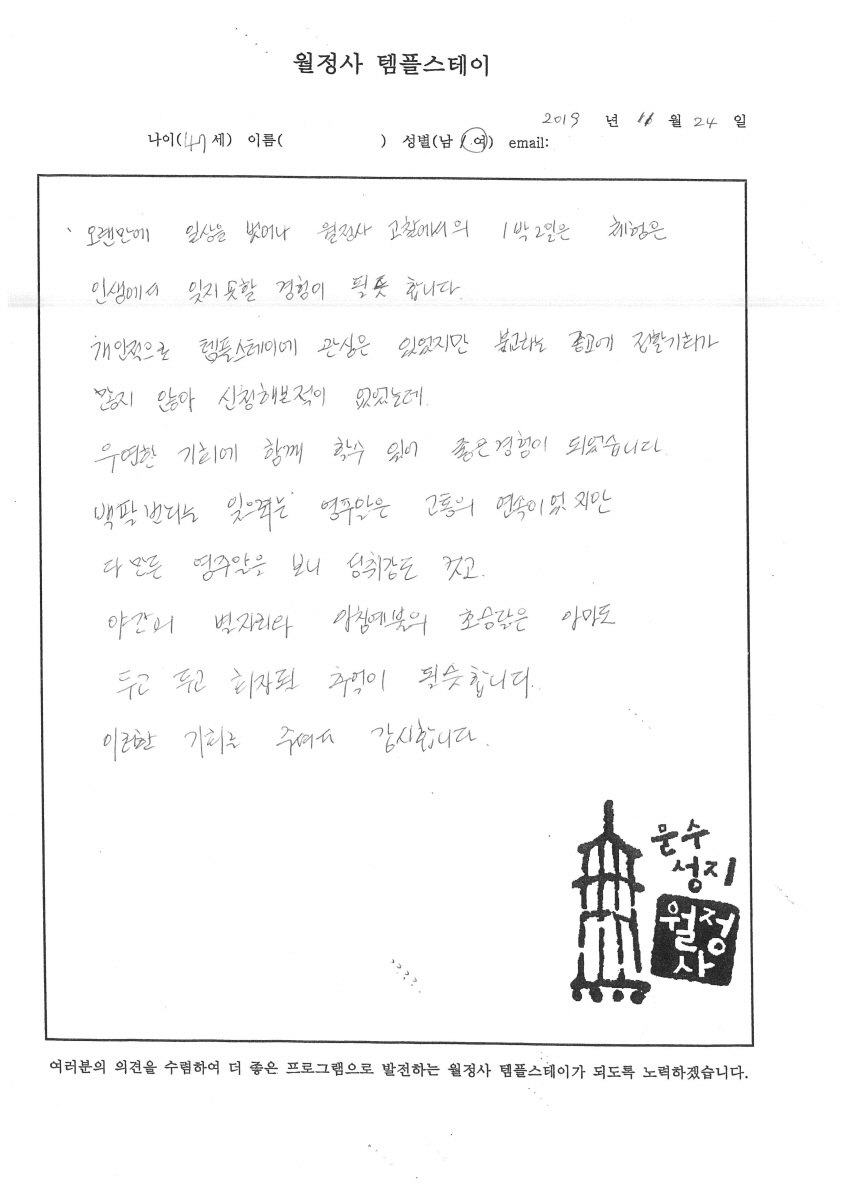 월정사 템플스테이
2019 년 11 월 24 일
나이(47세) 이름( ) 성별(남/여) email:
오랜만에 일상을 벗어나 월정사 고찰에서의 1박2일은 체험은
인생에서 잊지못할 경험이 될듯 합니다.
개인적으로 템플스테이에 관심은 있었지만 불교라는 종교에 접할기회가
많지 않아 신청해보적이 없었는데.
우연한 기회에 함께 할수 있어 좋은경험이 되었습니다.
백팔번뇌는 잊으려는 염주알은 고통의 연속이었지만
다 만든 염주알을 보니 성취감도 컷고.
야간의 별자리와 아침예불의 초승달은 아마도
두고 두고 회자될 추억이 될듯합니다.
이러한 기회를 주셔서 감사합니다.
문수
성지
월정
사
여러분의 의견을 수렴하여 더 좋은 프로그램으로 발전하는 월정사 템플스테이가 되도록 노력하겠습니다.